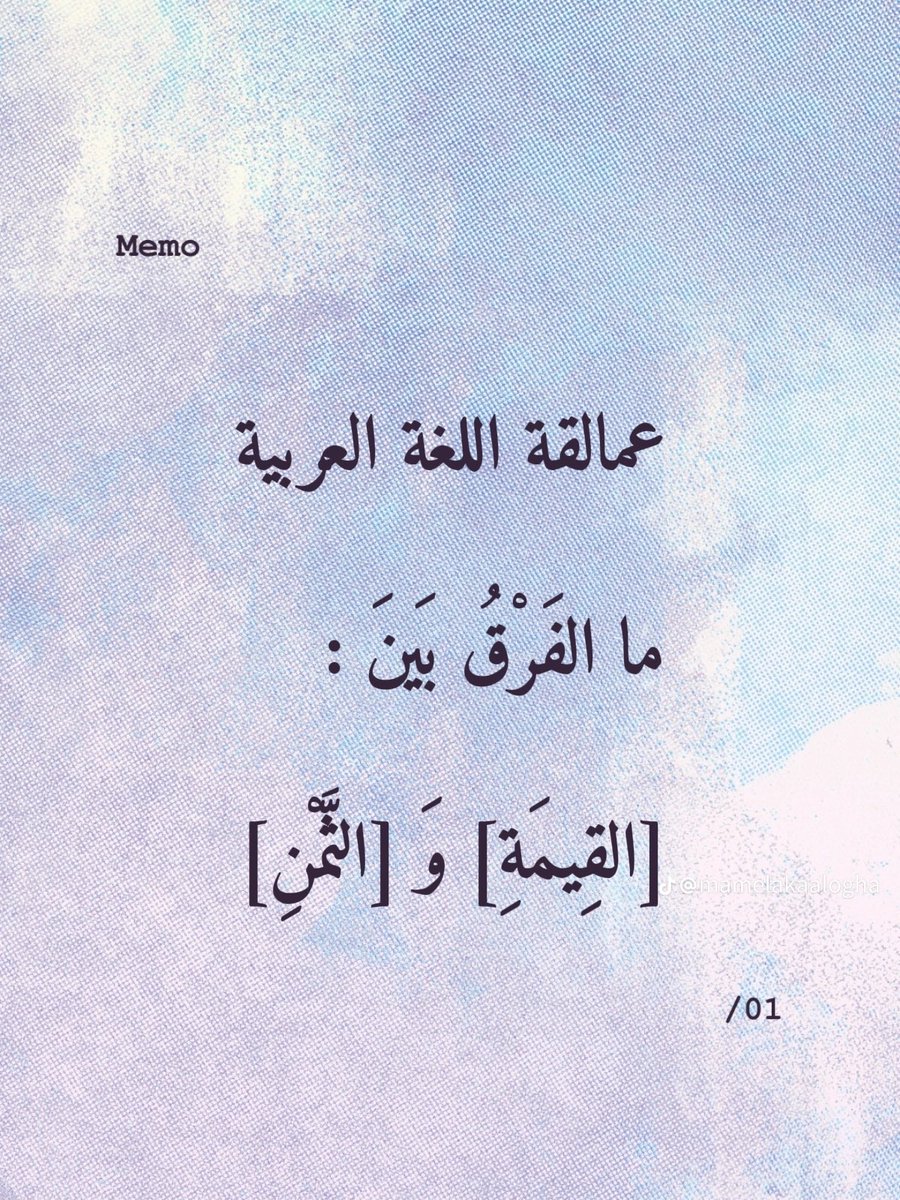 Memo
عمالقة اللغة العربية
ما الفَرْقُ بَينَ :
[القِيمَةِ] وَ [الثَّمْنِ]
@mamelakqalogha
/01